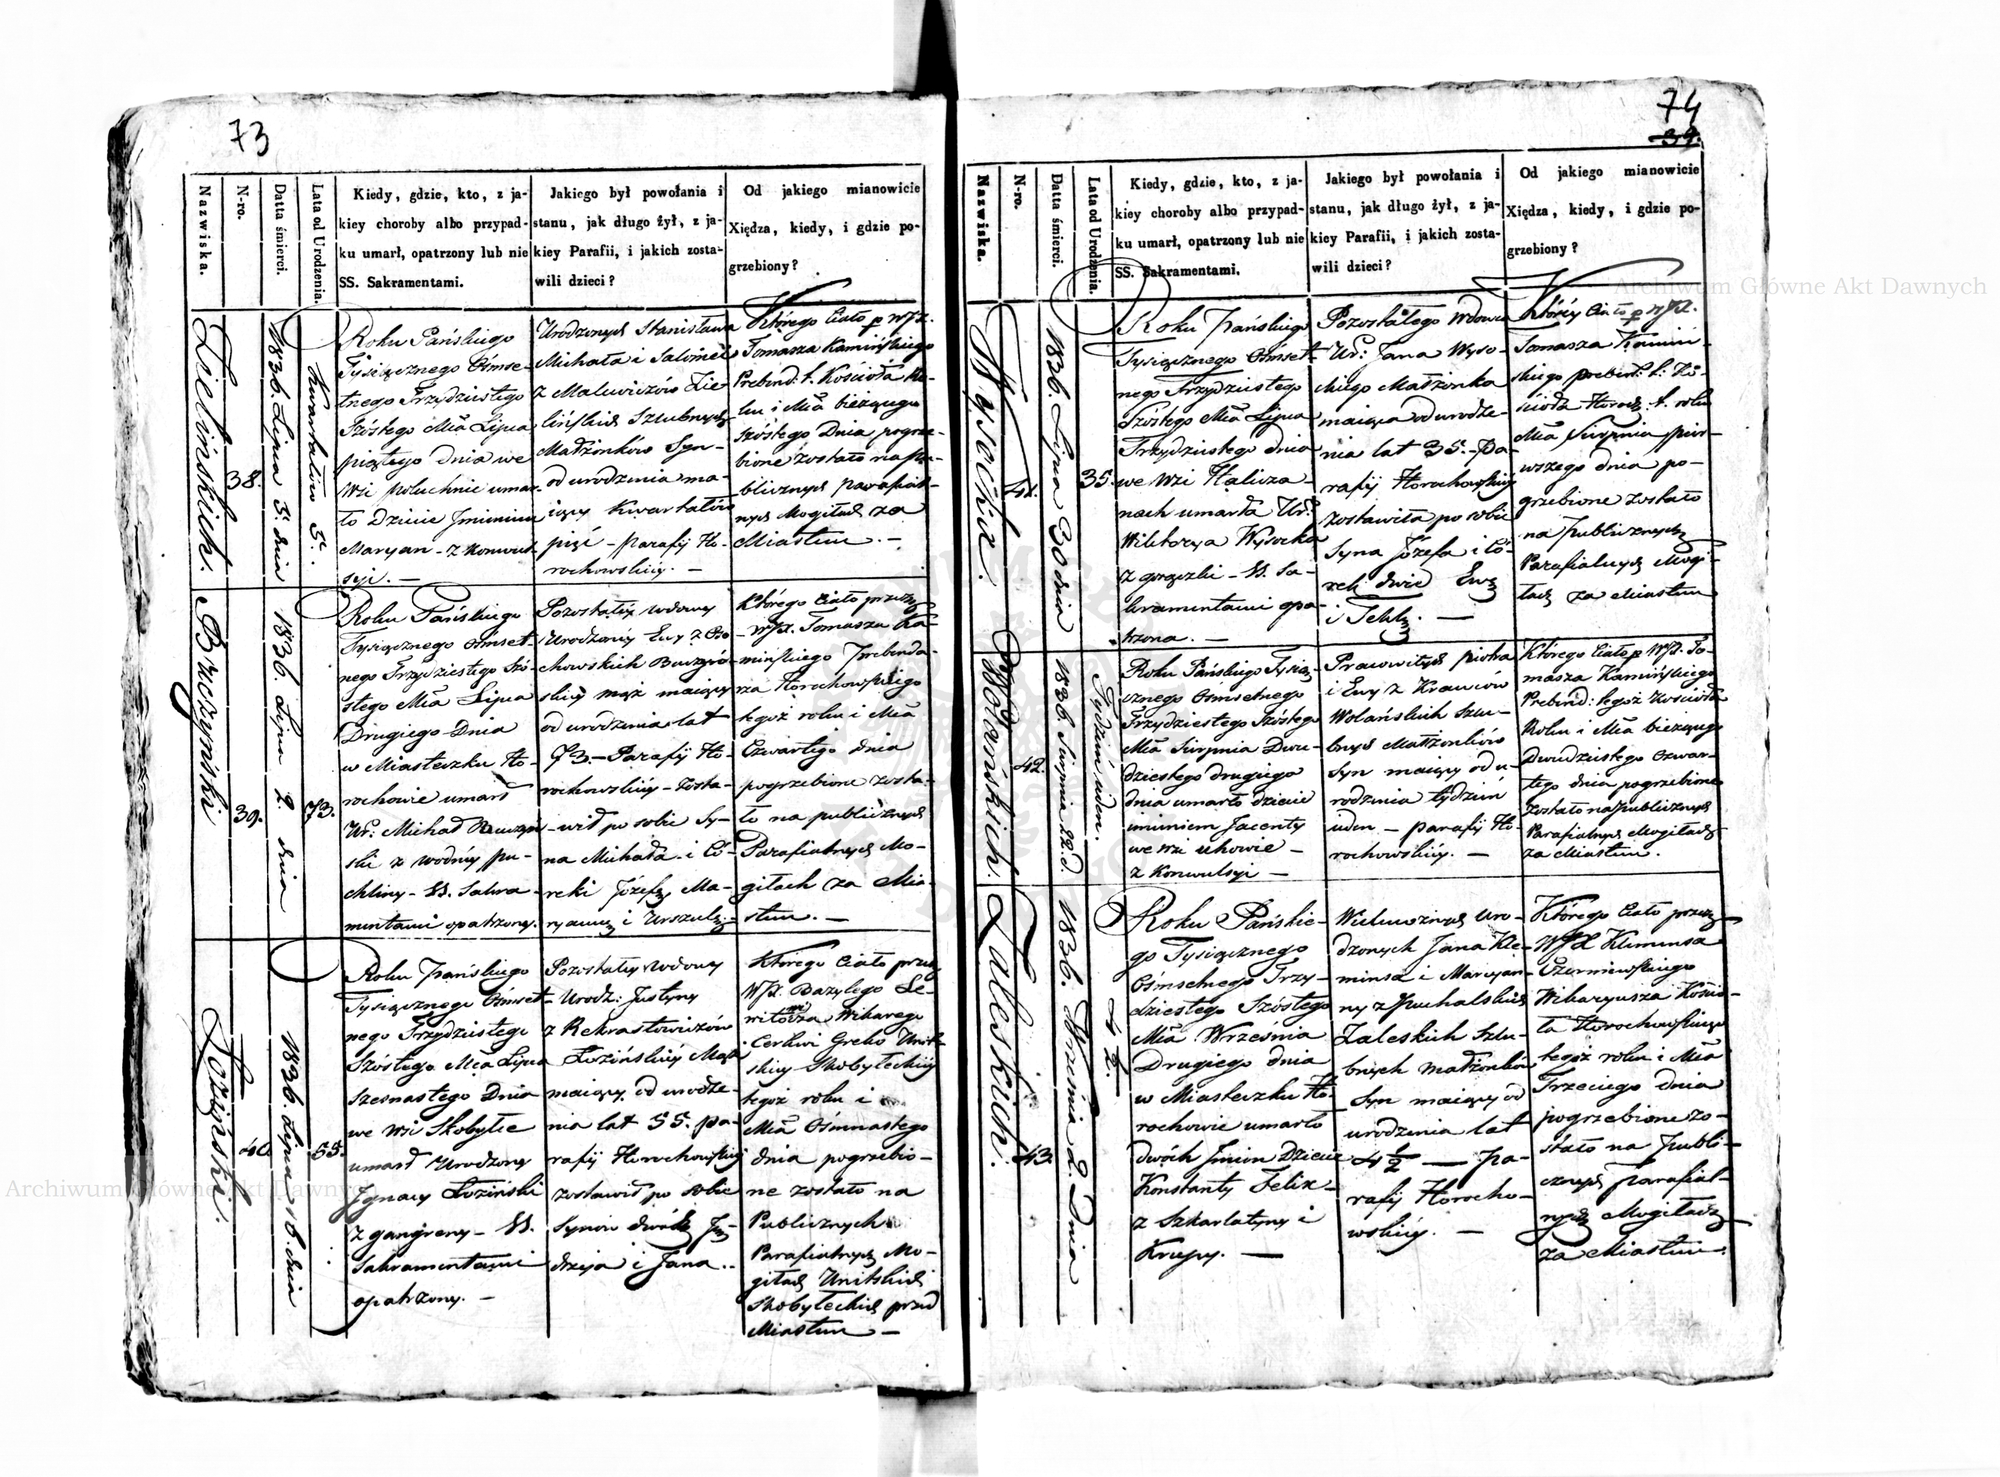 73
Nazwiska.
N-ro.
Datta śmierci.
Lata od Urodzenia.
Kiedy, gdzie, kto, z ja-
kiey choroby albo przypad-
ku umarł, opatrzony lub nie
SS. Sakramentami.
Jakiego był powołania i
stanu, jak długo żył, z ja-
kiey Parafii, i jakich zosta-
wili dzieci?
Od jakiego mianowicie
Xiędza, kiedy, i gdzie po-
grzebiony?
Zielińskich.
38.
1836. Lipca 5. dnia
Kwartałów 5.
Roku Pańskiego
Tysiącznego Ośmse-
tnego Trzydziestego
Szóstego Mca Lipca
piątego dnia we
Wsi umar-
ło Dziecie Imieniem
Maryan - z Konwul-
syi. -
Urodzonych Stanisława
Michała i Salomei
z Malewiczów Zie-
lińskich Szlubnych
Małżonków Syn-
od urodzenia ma-
iący Kwartałów
pięć - parafij Ho-
rochowskiey. -
Którego Ciało p WJX.
Tomasza Kamińskiego
Prebend: t. Kościoła Ro-
ku i Mca bieżącego
szóstego Dnia pogrze-
bione zostało na pu-
blicznych parafial-
nych Mogiłach za
Miastem. -
Buczyński
39.
1836. Lipca 2 dnia
73.
Roku Pańskiego
Tysiącznego Ośmset-
nego Trzydziestego Szó-
stego Mca Lipca
Drugiego Dnia
w Miasteczku Ho-
rochowie umarł
Ur: Michał Buczyń-
ski z wodney pu-
chliny - SS. Sakra-
mentami opatrzony.
Pozostałey wdowy
Urodzoney Ewy z
chowskich Buczyń-
skiey mąż maiący
od urodzenia lat
73 - Parafij Ho-
rochowskiey - Zosta-
wił po sobie Sy-
na Michała i Có-
reki Józefę Ma-
ryannę i Urszulę.
Którego Ciało przez
WJX. Tomasza Ka-
mińskiego Prebenda-
rza Horochowskiego
tegoż roku i Mca
Czwartego dnia
pogrzebione zosta-
ło na publicznych
Parafialnych Mo-
giłach za Mia-
stem. -
Łoziński.
40.
1836. Lipca 16 dnia
55.
Roku Pańskiego
Tysiącznego Ośmset-
nego Trzydziestego
Szóstego Mca Lipca
Szesnastego Dnia
we Wsi Skobyłce
umarł Urodzony
Ignacy Łoziński
z gangreny - SS.
Sakramentami
opatrzony. -
Pozostałey wdowy
Urodz: Justyny
z Rekrastowiczów
Łozińskiey Mąż
maiący od urodze-
nia lat 55. pa-
rafij Horochowskiey
zostawił po sobie
Synów dwóch Ję-
drzeja i Jana.
Którego Ciało przez
WJX. Bazylego Le-
Wikarego
Cerkwi Greko Unit-
skiey Skobyłeckiey
tegoż roku i
Mca Ośmnastego
dnia pogrzebio-
ne zostało na
Publicznych
Parafialnych Mo-
giłach Unitskich
Skobyłeckich przed
Miastem -
74
39.
Nazwiska.
N-ro.
Datta śmierci.
Lata od Urodzenia.
Kiedy, gdzie, kto, z ja-
kiey choroby albo przypad-
ku umarł, opatrzony lub nie
SS. Sakramentami.
Jakiego był powołania i
stanu, jak długo żył, z ja-
kiey Parafii, i jakich zosta-
wili dzieci?
Od jakiego mianowicie
Xiędza, kiedy, i gdzie po-
grzebiony?
Wysocka.
41.
1836. Lipca 30 dnia
35.
Roku Pańskiego
Tysiącznego Ośmset-
nego Trzydziestego
Szóstego Mca Lipca
Trzydziestego dnia
we Wsi Halicza-
nach umarła Ur:
Wiktorya Wysocka
z gorączki - SS. Sa-
kramentami opa-
trzona. -
Pozostałego Wdowca
Ur: Jana Wyso-
ckiego Małżonka
maiąca od urodze-
nia lat 35. - Pa-
rafij Horochowskiey
zostawiła po sobie
Syna Józefa i Có-
rek dwie Ewę
i Teklę. -
Którey Ciało p WJX.
Tomasza Kamiń-
skiego prebend: t: Ko-
ścioła Horoch: t. roku
Mca Sierpnia pier-
wszego dnia po-
grzebione zostało
na publicznych
Parafialnych Mogi-
łach za Miastem
Wolańskich.
42.
1836 Sierpnia 22. d.
Tydzień ieden.
Roku Pańskiego Tysią-
cznego Ośmsetnego
Trzydziestego Szóstego
Mca Sierpnia Dwu-
dziestego drugiego
dnia umarło dziecie
imieniem Jacenty
we wsi Uhowie -
z Konwulsyi -
Prawowitych Piotra
i Ewy z Krawców
Wolańskich Szlu-
bnych Małżonków
Syn maiący od u-
rodzenia tydzień
ieden - parafij Ho-
rochowskiey. -
Którego Ciało p WJX. To-
masza Kamińskiego
Prebend: tegoż Kościoła
Roku i Mca bieżącego
Dwudziestego Czwar-
tego dnia pogrzebione
zostało na publicznych
Parafialnych Mogiłach
za Miastem.
Zaleskich.
43.
1836. Września 2. Dnia
4 1/2.
Roku Pańskie-
go Tysiącznego
Ośmsetnego Trzy-
dziestego Szóstego
Mca Września
Drugiego dnia
w Miasteczku Ho-
rochowie umarło
dwóch Imion Dziecie
Konstanty Felix -
z Szkarlatyny i
Krupy. -
Wielmożnych Uro-
dzonych Jana Kle-
mensa i Maryan-
ny z Puchalskich
Zaleskich Szlu-
bnych Małżonków
Syn maiący od
urodzenia lat
4 1/2 - Pa-
rafij Horocho-
wskiey. -
Którego Ciało przez
WJX Klemensa
Czerniewskiego
Wikaryusza Kościo-
ła Horochowskiego
tegoż roku i Mca
Trzeciego dnia
pogrzebione zo-
stało na Publi-
cznych Parafial-
nych Mogiłach
za Miastem.
Archiwum Główne Akt Dawnych
Archiwum Główne Akt Dawnych